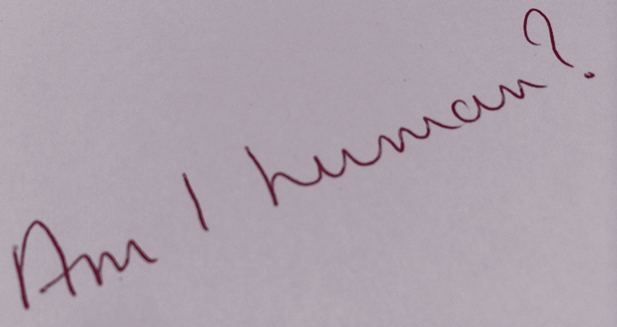 Am I human?